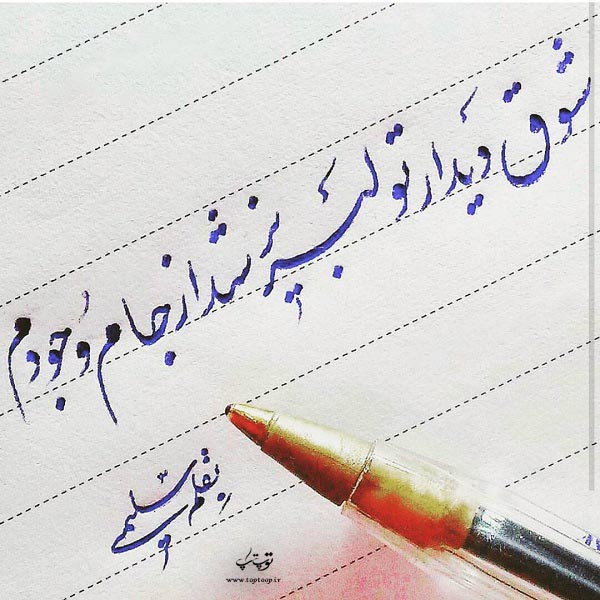 شوق دیدار تو لبریز شد از جام وجودم
بقلم سلیمی
توپ تاپ
www.toptoop.ir